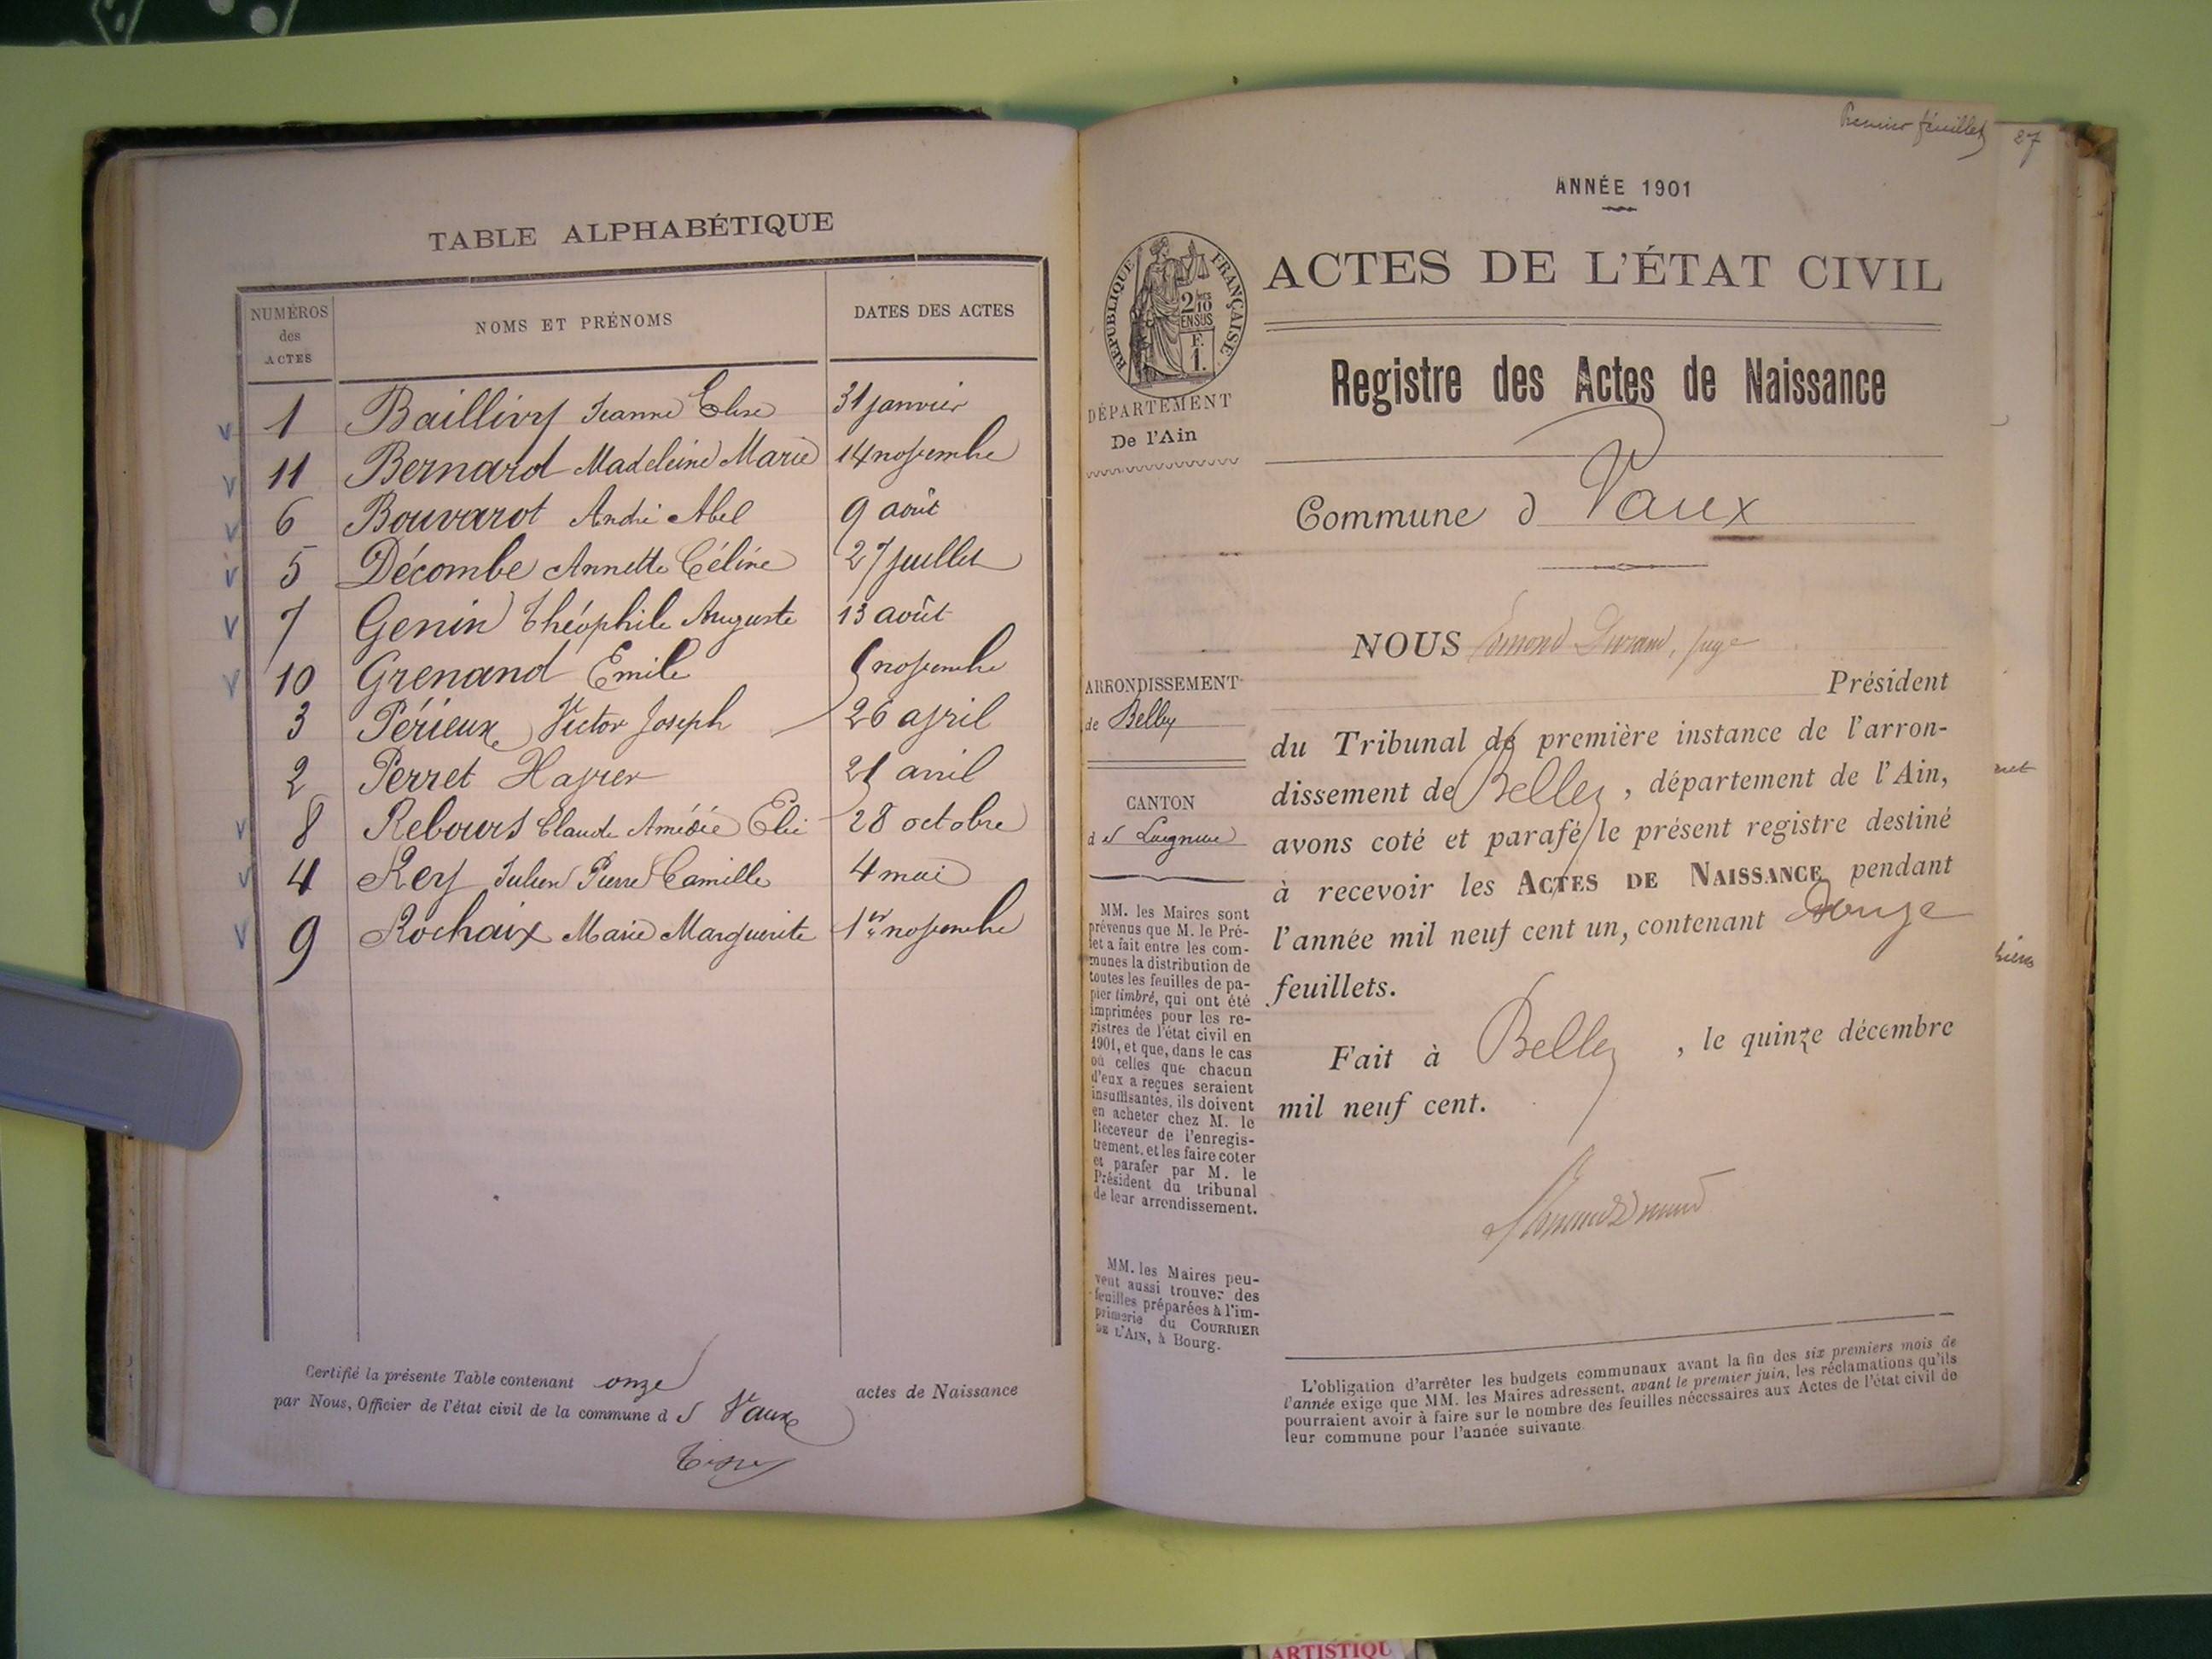 TABLE ALPHABÉTIQUE
NUMÉROS des ACTES
NOMS ET PRÉNOMS
DATES DES ACTES
1 Baillivy Jeanne Elise 31 janvier
11 Bernard Madeleine Marie 14 novembre
6 Bouvarot André Abel 9 août
5 Décombe Annette Céline 27 juillet
7 Genin Théophile Auguste 13 août
10 Grenand Emile 5 novembre
3 Périeux Victor Joseph 26 avril
2 Perret Xavier 25 avril
8 Rebours Claude Amédée Elie 28 octobre
4 Rey Julien Pierre Camille 4 mai
9 Rochaix Marie Marguerite 1er novembre
Certifié la présente Table contenant onze actes de Naissance
par Nous, Officier de l'état civil de la commune d Vaux
Premier feuillet
27
ANNÉE 1901
RÉPUBLIQUE FRANÇAISE
2/10
EN SUS
F.
1.
ACTES DE L'ÉTAT CIVIL
DÉPARTEMENT
De l'Ain
Registre des Actes de Naissance
Commune d Vaux
NOUS Edmond Durand, juge
Président
du Tribunal de première instance de l'arron-
dissement de Belley, département de l'Ain,
avons coté et parafé le présent registre destiné
à recevoir les ACTES DE NAISSANCE pendant
l'année mil neuf cent un, contenant douze
feuillets.
Fait à Belley, le quinze décembre
mil neuf cent.
ARRONDISSEMENT
de Belley
CANTON
d Lagnieu
MM. les Maires sont
prévenus que M. le Pré-
fet a fait entre les com-
munes la distribution de
toutes les feuilles de pa-
pier timbré, qui ont été
imprimées pour les re-
gistres de l'état civil en
1901, et que, dans le cas
où celles que chacun
d'eux a reçues seraient
insuffisantes, ils doivent
en acheter chez M. le
Receveur de l'enregis-
trement, et les faire coter
et parafer par M. le
Président du tribunal
de leur arrondissement.
MM. les Maires peu-
vent aussi trouver des
feuilles préparées à l'im-
primerie du COURRIER
DE L'AIN, à Bourg.
L'obligation d'arrêter les budgets communaux avant la fin des six premiers mois de
l'année exige que MM. les Maires adressent, avant le premier juin, les réclamations qu'ils
pourraient avoir à faire sur le nombre des feuilles nécessaires aux Actes de l'état civil de
leur commune pour l'année suivante.
ARTISTIQU